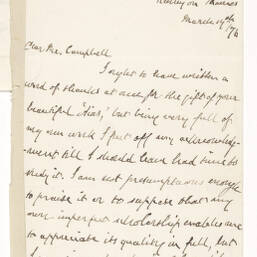 Henley on Thames
March 19th /76
Dear Mr. Campbell
I ought to have written a
word of thanks at once for the gift of your
beautiful 'Ajax', but being very full of
my own work I put off any acknowledg-
ment till I should have had time to
study it. I am not presumptuous enough
to praise it or to suppose that any
own imperfect scholarship enables me
to appreciate its quality in full, but